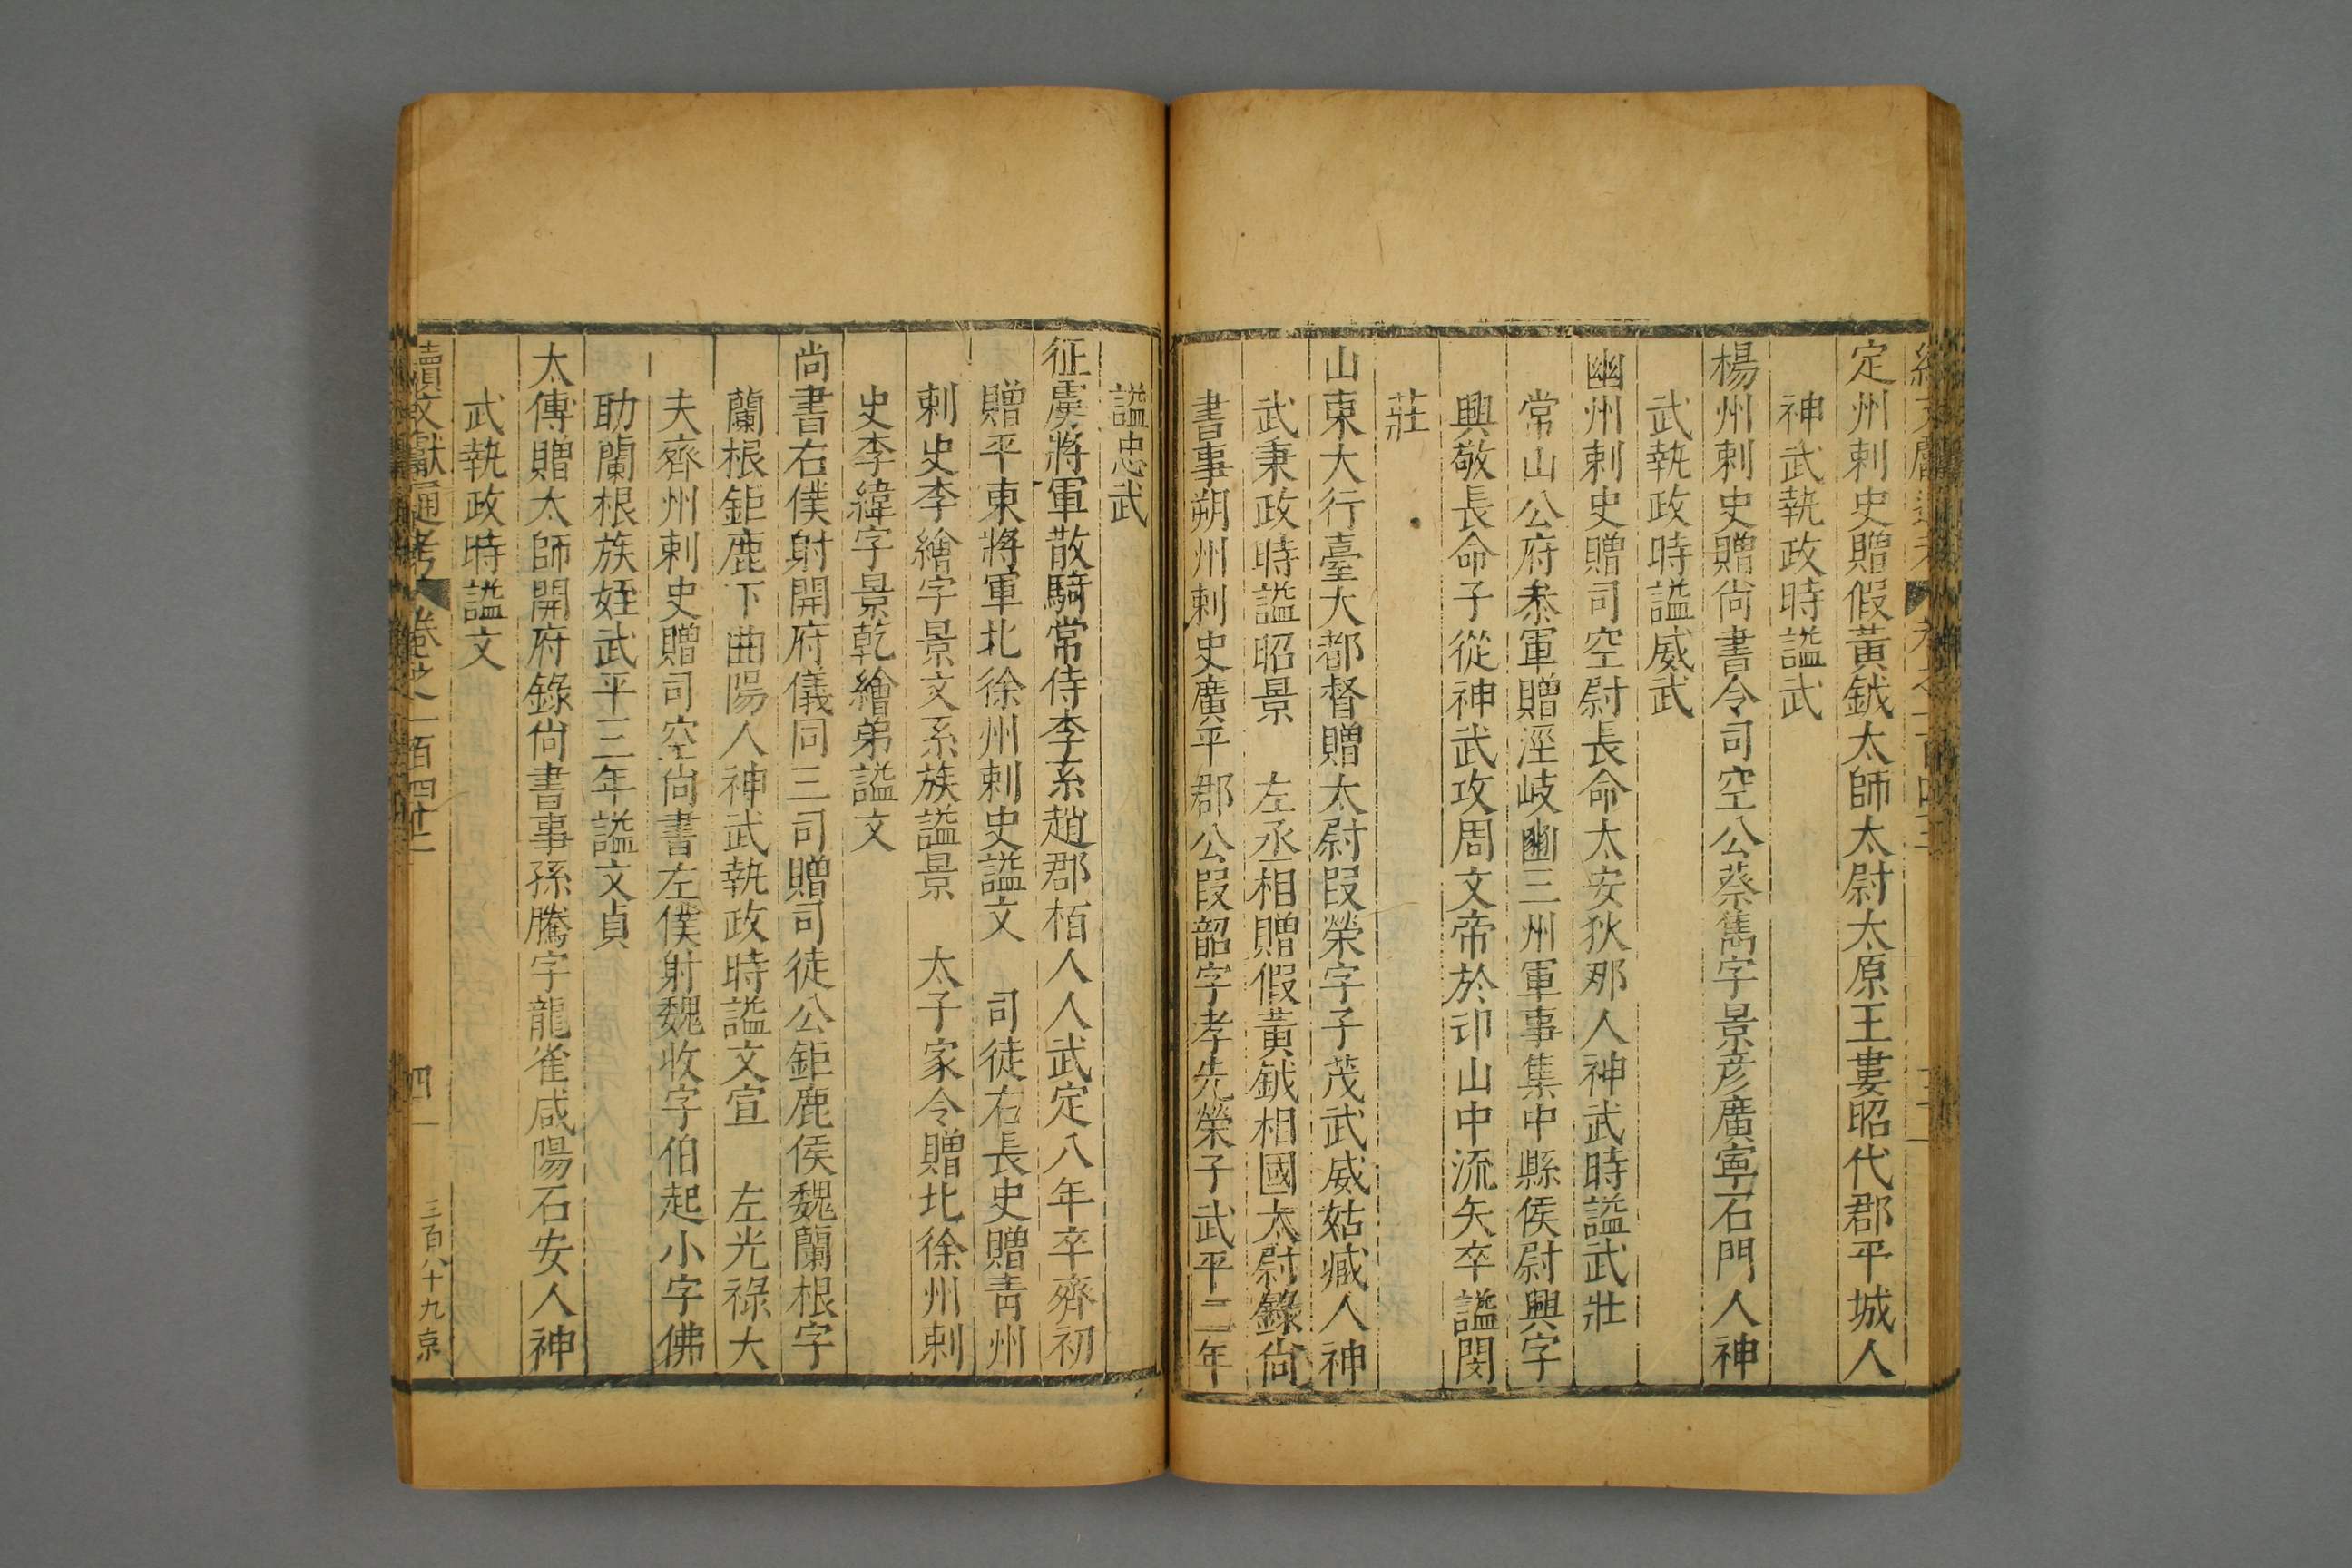 定州刺史贈假黃鉞太師太尉太原王婁昭代郡平城人
神武執政時謚武
楊州刺史贈尚書令司空公蔡雋字景彦廣寧石門人神
武執政時謚威武
幽州刺史贈司空尉長命太安狄那人神武時謚武壯
常山公府叅軍贈涇岐豳三州軍事集中縣侯尉興字
興敬長命子從神武攻周文帝於邙山中流矢卒謚閔
莊
山東大行臺大都督贈太尉叚榮字子茂武威姑臧人神
武秉政時謚昭景 左丞相贈假黃鉞相國太尉錄尚
書事朔州刺史廣平郡公叚韶字孝先榮子武平二年
謚忠武
征虜將軍散騎常侍李系趙郡栢人人武定八年卒齊初
贈平東將軍北徐州刺史謚文 司徒右長史贈青州
刺史李繪字景文系族謚景 太子家令贈北徐州刺
史李緯字景乾繪弟謚文
尚書右僕射開府儀同三司贈司徒公鉅鹿侯魏蘭根字
蘭根鉅鹿下曲陽人神武執政時謚文宣 左光祿大
夫齊州刺史贈司空尚書左僕射魏收字伯起小字佛
助蘭根族姪武平三年謚文貞
太傅贈太師開府錄尚書事孫騰字龍雀咸陽石安人神
武執政時謚文
續文獻通考 卷之一百四十三 四 三百八十九 京